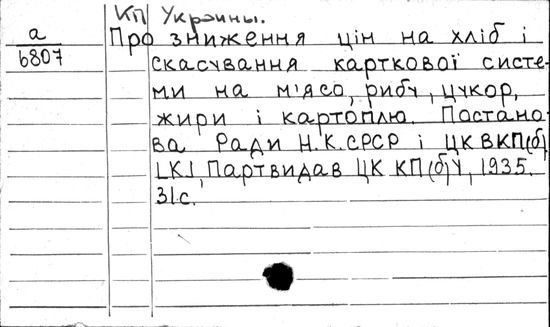 КП Украины.
а
6807
Про зниження цін на хліб і
скасування карткової систе-
ми на м'ясо, рибу, цукор,
жири і картоплю. Постано-
ва Ради Н.К.СРСР і ЦКВКП(б)
[К], Партвидав ЦК КП(б)У, 1935.
31с.